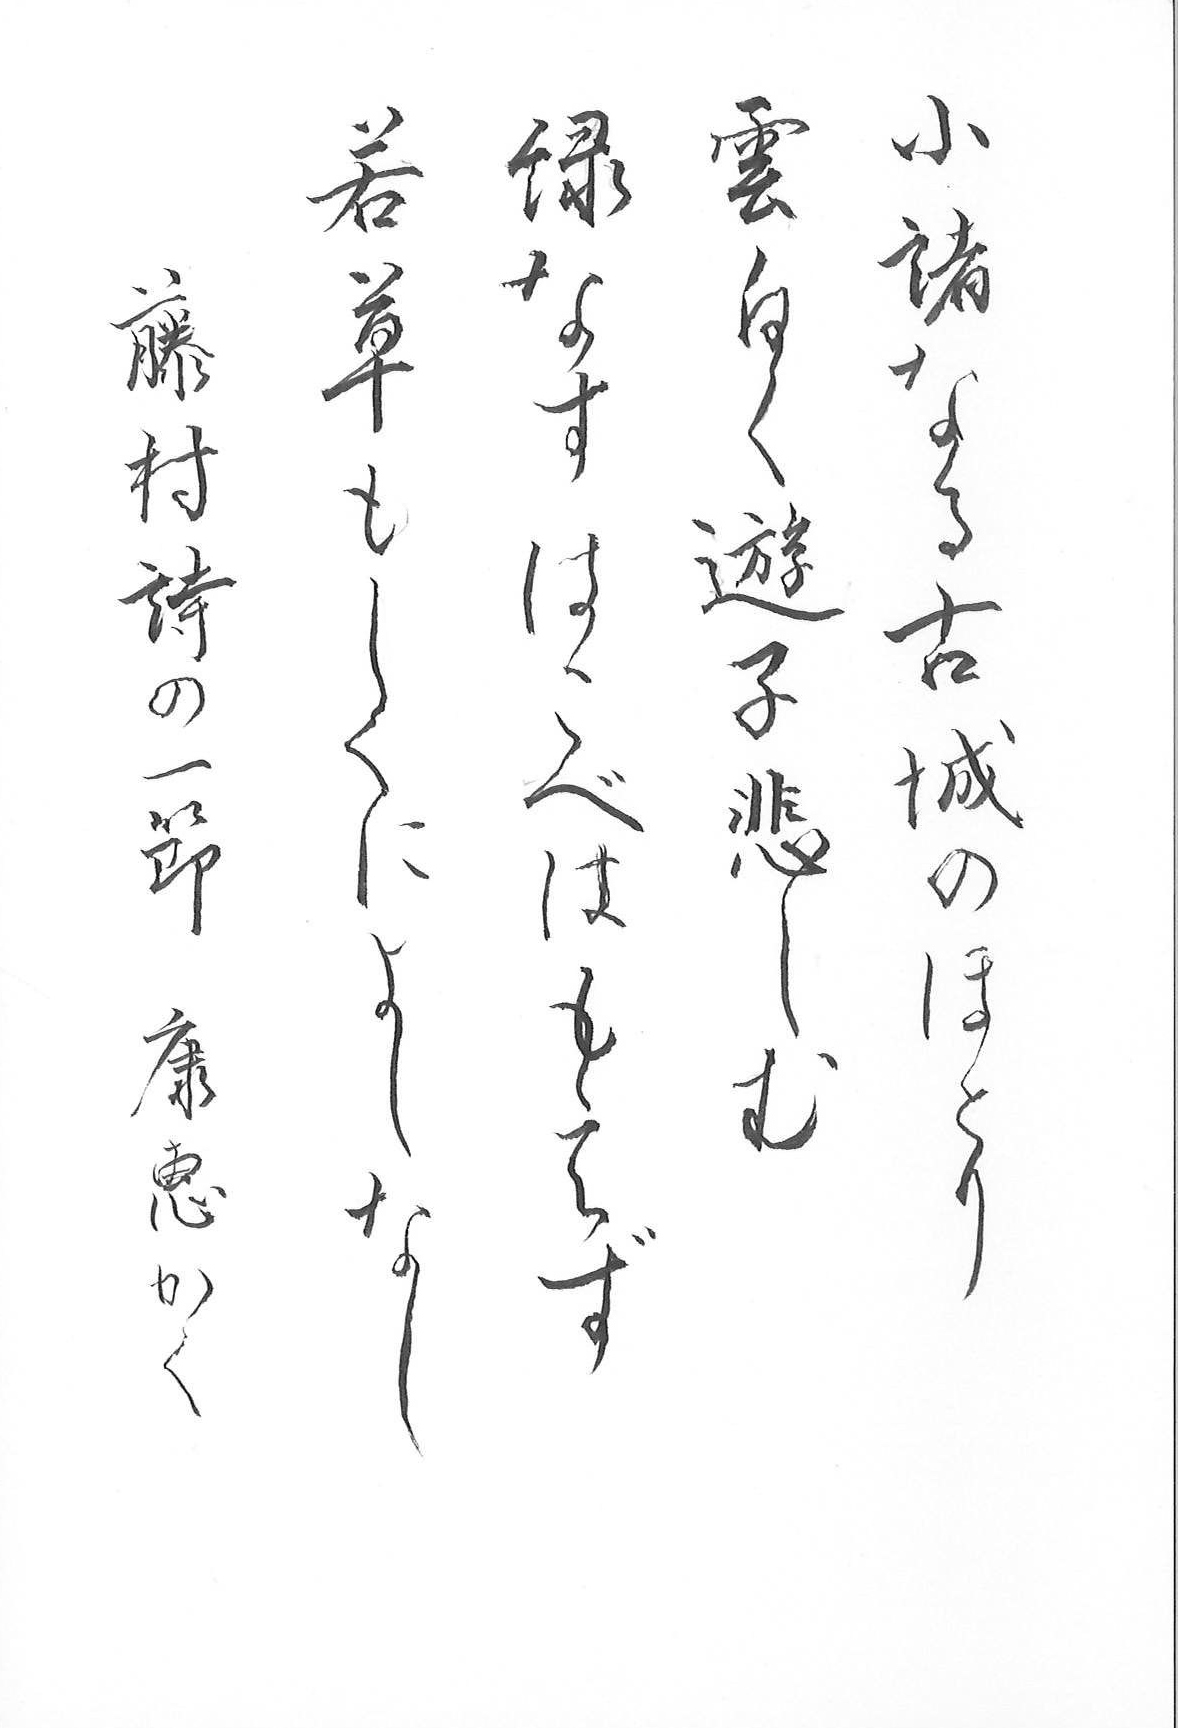 小諸なる古城のほとり
雲白く遊子悲しむ
緑なすはこべはもえず
若草もしくによしなし
藤村詩の一節　康恵かく